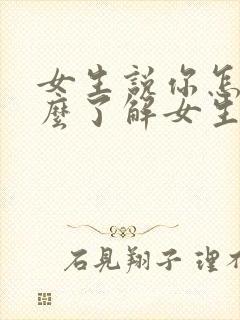 女生説你怎
麼了解女生
石見翔子 理不